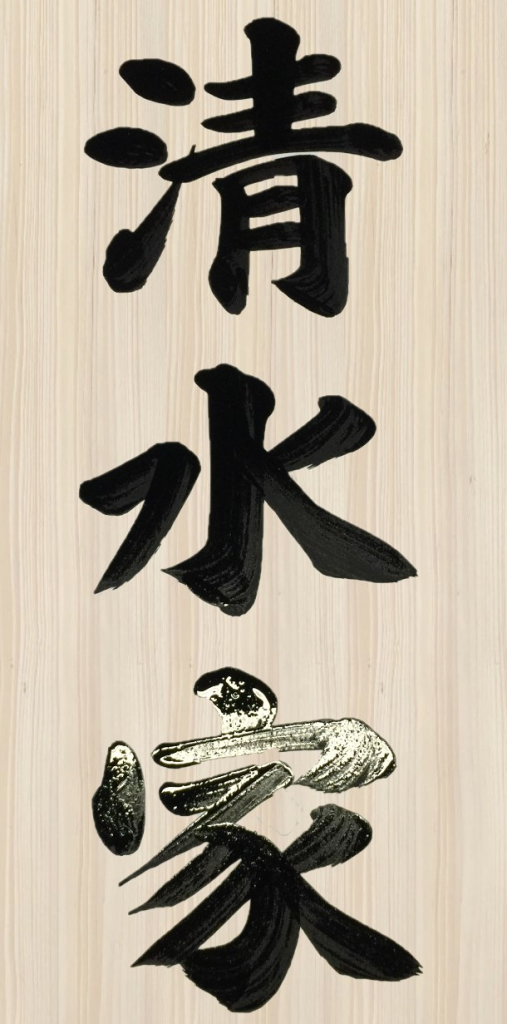 清水家